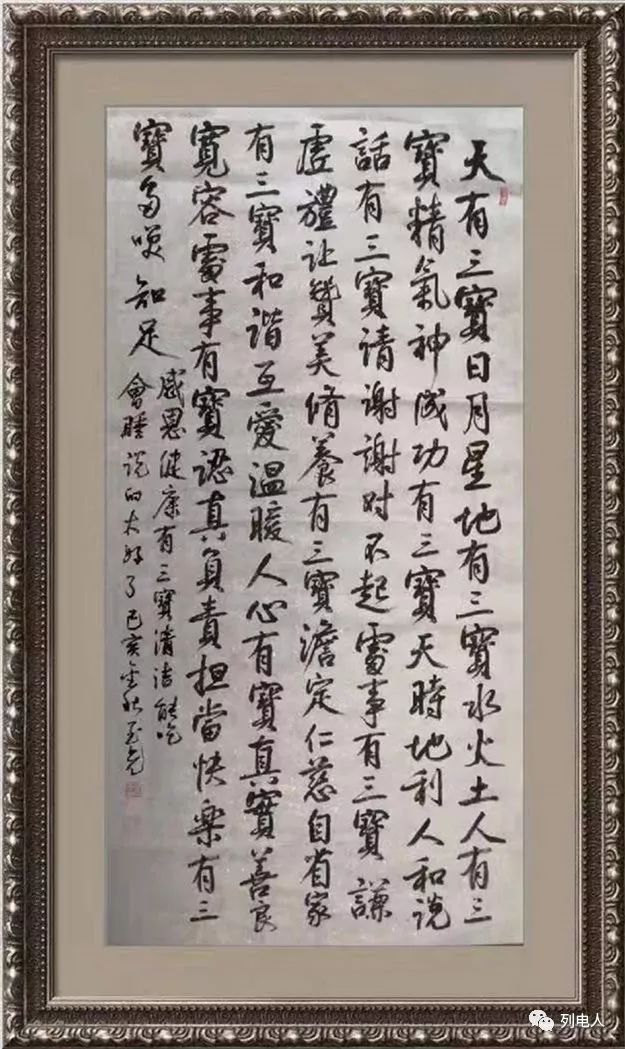 天有三寶日月星地有三寶水火土人有三
寶精氣神成功有三寶天時地利人和说
話有三寶请谢谢对不起雷事有三寶謙
虚禮让贊美脩養有三寶澹定仁慈自省家
有三寶和谐互愛温暖人心有寶真實善良
寛容雷事有寶認真負責担當快乐有三
寶多唉知足
感恩健康有三寶清洁能吃
會睡说的太好了己亥金秋
列电人